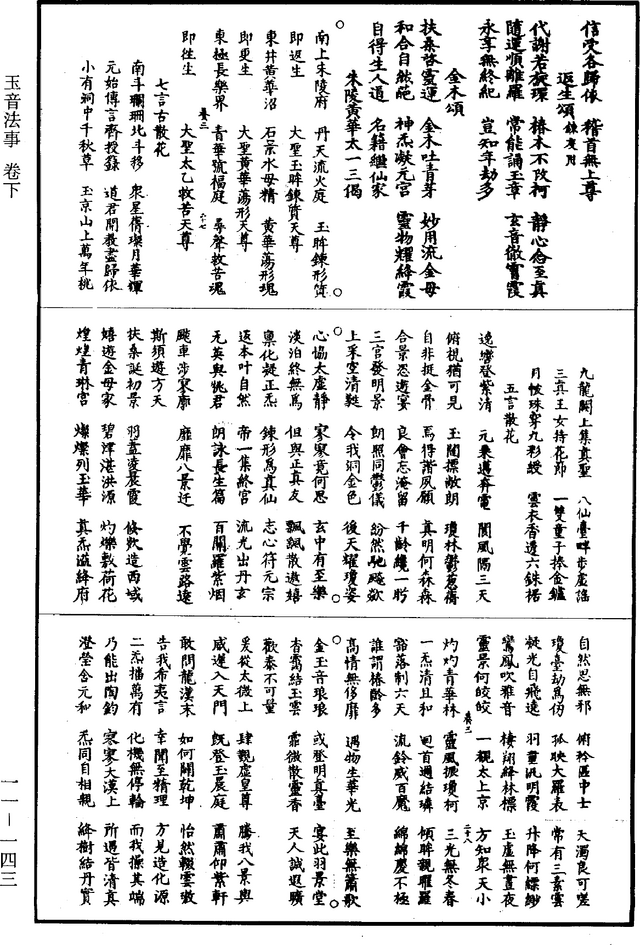 玉音法事 卷下
信受各歸依 稽首無上尊
返生頌 鍊度用
代謝若旋環 椿木不改柯 靜心念至真
隨運順離羅 常能誦玉章 玄音徹霄霞
永享無終紀 豈知年劫多
金木頌
扶桑啓靈運 金木吐青芽 妙用流金母
和合自然葩 神炁凝元宮 靈物耀絳霞
自得生人道 名籍繼仙家
朱陵黃華太一三偈
南上朱陵府 丹天流火庭 玉眸鍊形質
即返生 大聖玉眸鍊質天尊
東井黃華沼 石景水母精 黃華蕩形魂
即更生 大聖黃華蕩形天尊
東極長樂界 青華號福庭 尋聲救苦魂
卷三 六七
即往生 大聖太乙救苦天尊
七言古散花
南斗瓓珊北斗移 衆星齊燦月華輝
元始傳言齊授籙 道君開教盡歸依
小有洞中千秋草 玉京山上萬年桃
九龍闕上集真聖 八仙臺畔步虛謠
三真王女持花節 一雙童子捧金爐
月帔珠穿九彩綬 雲衣香邊六銖裙
五言散花
遶轡登紫清 元乘邁奔電 閬風隔三天
俯視猶可見 玉闕摽敞朗 瓊林鬱葱蒨
自非挺金骨 焉得諧夙願 真明何森森
合景恣遊宴 良會忘淹留 千齡纔一眄
三官發明景 朗照同鬱儀 紛然馳飈欻
上采空清蕤 令我洞金色 後天耀瓊姿
心協太虛靜 寥寥竟何思 玄中有至樂
淡泊終無爲 但與正真友 飄飄散遨嬉
稟化凝正炁 鍊形爲真仙 志心符元宗
返本叶自然 帝一集絳宮 流光出丹玄
元英與桃君 朗詠長生篇 百關羅紫烟
飈車涉寥廓 靡靡八景遷 不覺雲路遠
斯須遊方天
扶桑誕初景 羽蓋凌晨霞 倏欻造西域
嬉遊金母家 碧潭湛洪源 灼爍敷荷花
煌煌青琳宮 燦燦列玉華 真炁溢絳府
自然思無邪 俯矜區中士 夭濁良可嗟
瓊臺劫爲仞 孤映大羅表 常有三素雲
凝光自飛遶 羽童汎明霞 升降何縹緲
鸞風吹雅音 棲翔絳林標 玉虛無晝夜
靈景何皎皎 一覩太上京 方知衆天小
卷三 六八
灼灼青華林 靈風振瓊柯 三光無冬春
一炁清且和 回首邇結璘 傾眸親曜羅
豁落制六天 流鈴威百魔 綿綿慶不極
誰謂椿齡多
高情無侈靡 遇物生華光 至樂無蕭歌
金玉音琅琅 或登明真臺 宴此羽景堂
杳靄結玉雲 霏微散靈香 天人誠遐曠
歡泰不可量
爰從太微上 肆覲虛皇尊 騰我八景輿
威遲入天門 既登玉晨庭 肅肅仰紫軒
敢問龍漢末 如何闢乾坤 怡然輟雲璈
告我希夷言 幸聞至精理 方見造化源
二炁播萬有 化機無停輪 而我操其端
乃能出陶鈞 寥寥大漠上 所遇皆清真
澄瑩含元和 炁同自相親 絳樹結丹實
一一－一四三